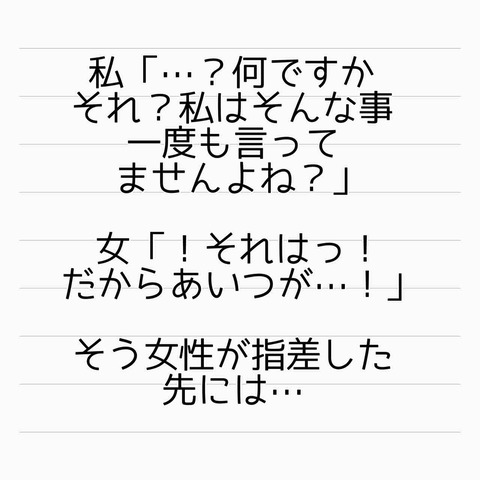 私「…？何ですか
それ？私はそんな事
一度も言って
ませんよね？」
女「！それはっ！
だからあいつが…！」
そう女性が指差した
先には…